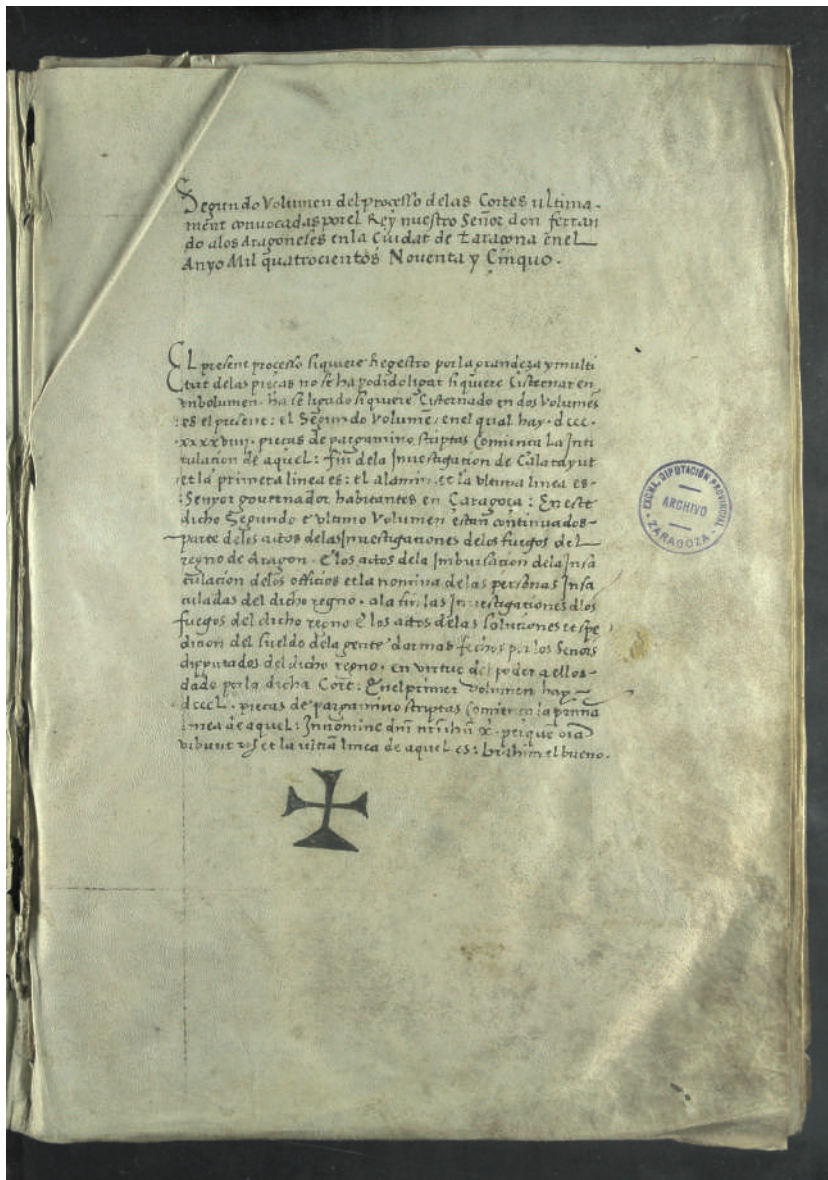 Segundo Volumen del processo delas Cortes ultima-
ment convocadas por el Rey nuestro Señor don ferran
do alos Aragoneses enla Ciudat de taraçona Enel
Anyo Mil quatrocientos Noventa y Cinquo.
El present processo siquiere Regestro por la grandeza y multi
tut delas pieças no se ha podido ligar siquiere Cisternar en
un bolumen. ha se ligado siquiere Cisternado en dos Volumēs
:es el present: el Segundo Volumē, enel qual hay. dccc.
.xxxxviiij. pieças de pargamino scriptas Comiença La Inti
tulacion de aquel: fin dela Investigacion de Calatayut
et la primera linea es: el alamin. et la ultima linea es-
:Senyor governador habitantes en Caragoça: En este
dicho Segundo e ultimo Volumen estan continuados-
parte delos actos delas Investigaciones delos fuegos del
regno de Aragon. E los actos dela Imbursacion dela Insa
culacion delos officios et la nomina de las personas Insa
culadas del dicho regno. a la fin las Investigaciones dlos
fuegos del dicho regno E los actos delas soluciones et spe
dicion del sueldo dela gente darmas fechos por los Señorš
diputados del dicho regno. en virtut del poder a ellos-
dado por la dicha Cort: En el primer Volumen hay-
.dcccL. pieças de pargamino scriptas Comiença la primā
linea de aquel: In nomine dnī nrī ihū x̄. per quē
et la ultīa linea de aquel es: brahim el bueno.
EXCMA. DIPUTACIÓN PROVINCIAL
ARCHIVO
ZARAGOZA